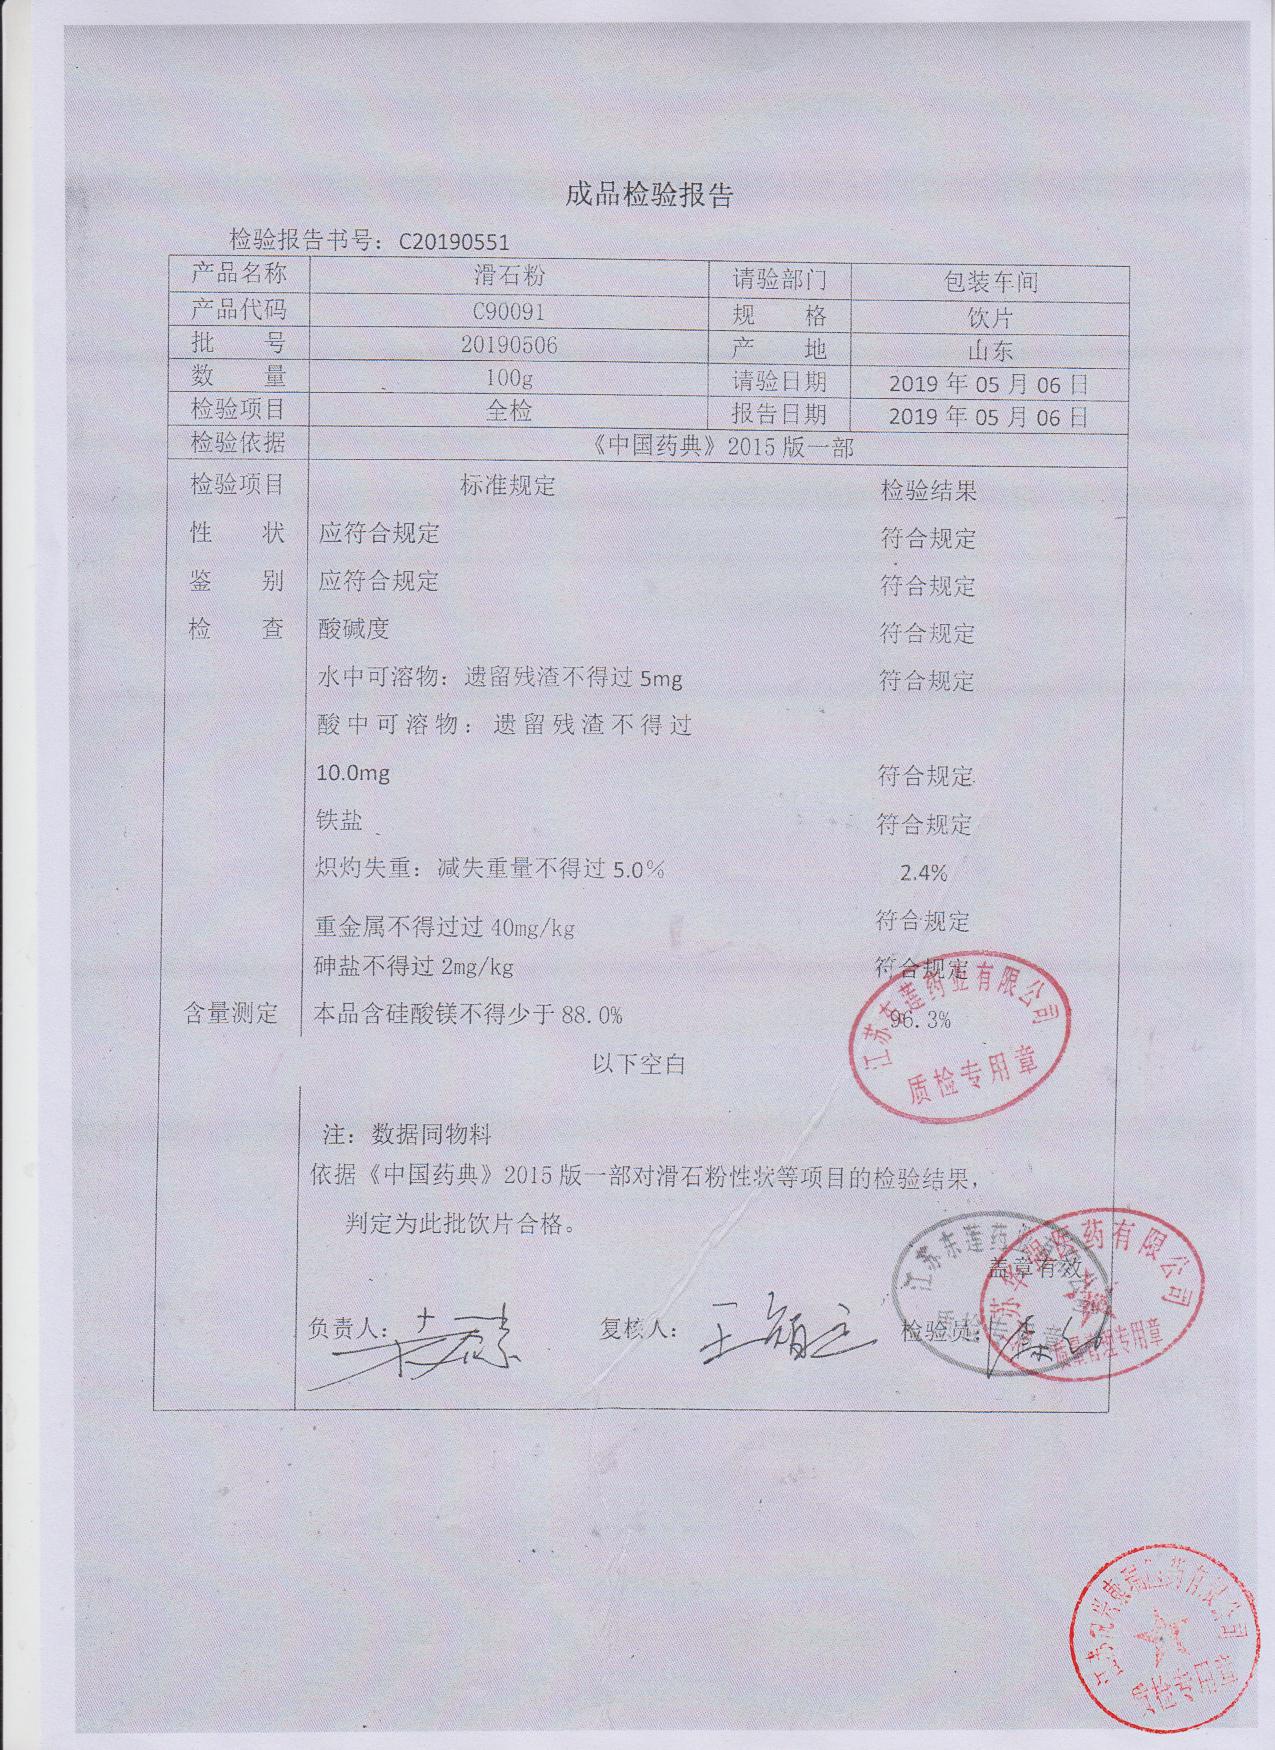 成品检验报告
检验报告书号：C20190551
产品名称 滑石粉 请验部门 包装车间
产品代码 C90091 规 格 饮片
批 号 20190506 产 地 山东
数 量 100g 请验日期 2019年05月06日
检验项目 全检 报告日期 2019年05月06日
检验依据 《中国药典》2015版一部
检验项目 标准规定 检验结果
性 状 应符合规定 符合规定
鉴 别 应符合规定 符合规定
检 查 酸碱度 符合规定
水中可溶物：遗留残渣不得过5mg 符合规定
酸中可溶物：遗留残渣不得过
10.0mg 符合规定
铁盐 符合规定
炽灼失重：减失重量不得过5.0% 2.4%
重金属不得过过40mg/kg 符合规定
砷盐不得过2mg/kg 符合规定
含量测定 本品含硅酸镁不得少于88.0% 96.3%
江苏东莲药业有限公司
质检专用章
以下空白
注：数据同物料
依据《中国药典》2015版一部对滑石粉性状等项目的检验结果，
判定为此批饮片合格。
盖章有效
江苏东莲药
医药有限公司
质量管理专用章
负责人： 复核人： 检验员：
医药有限公司
质检专用章